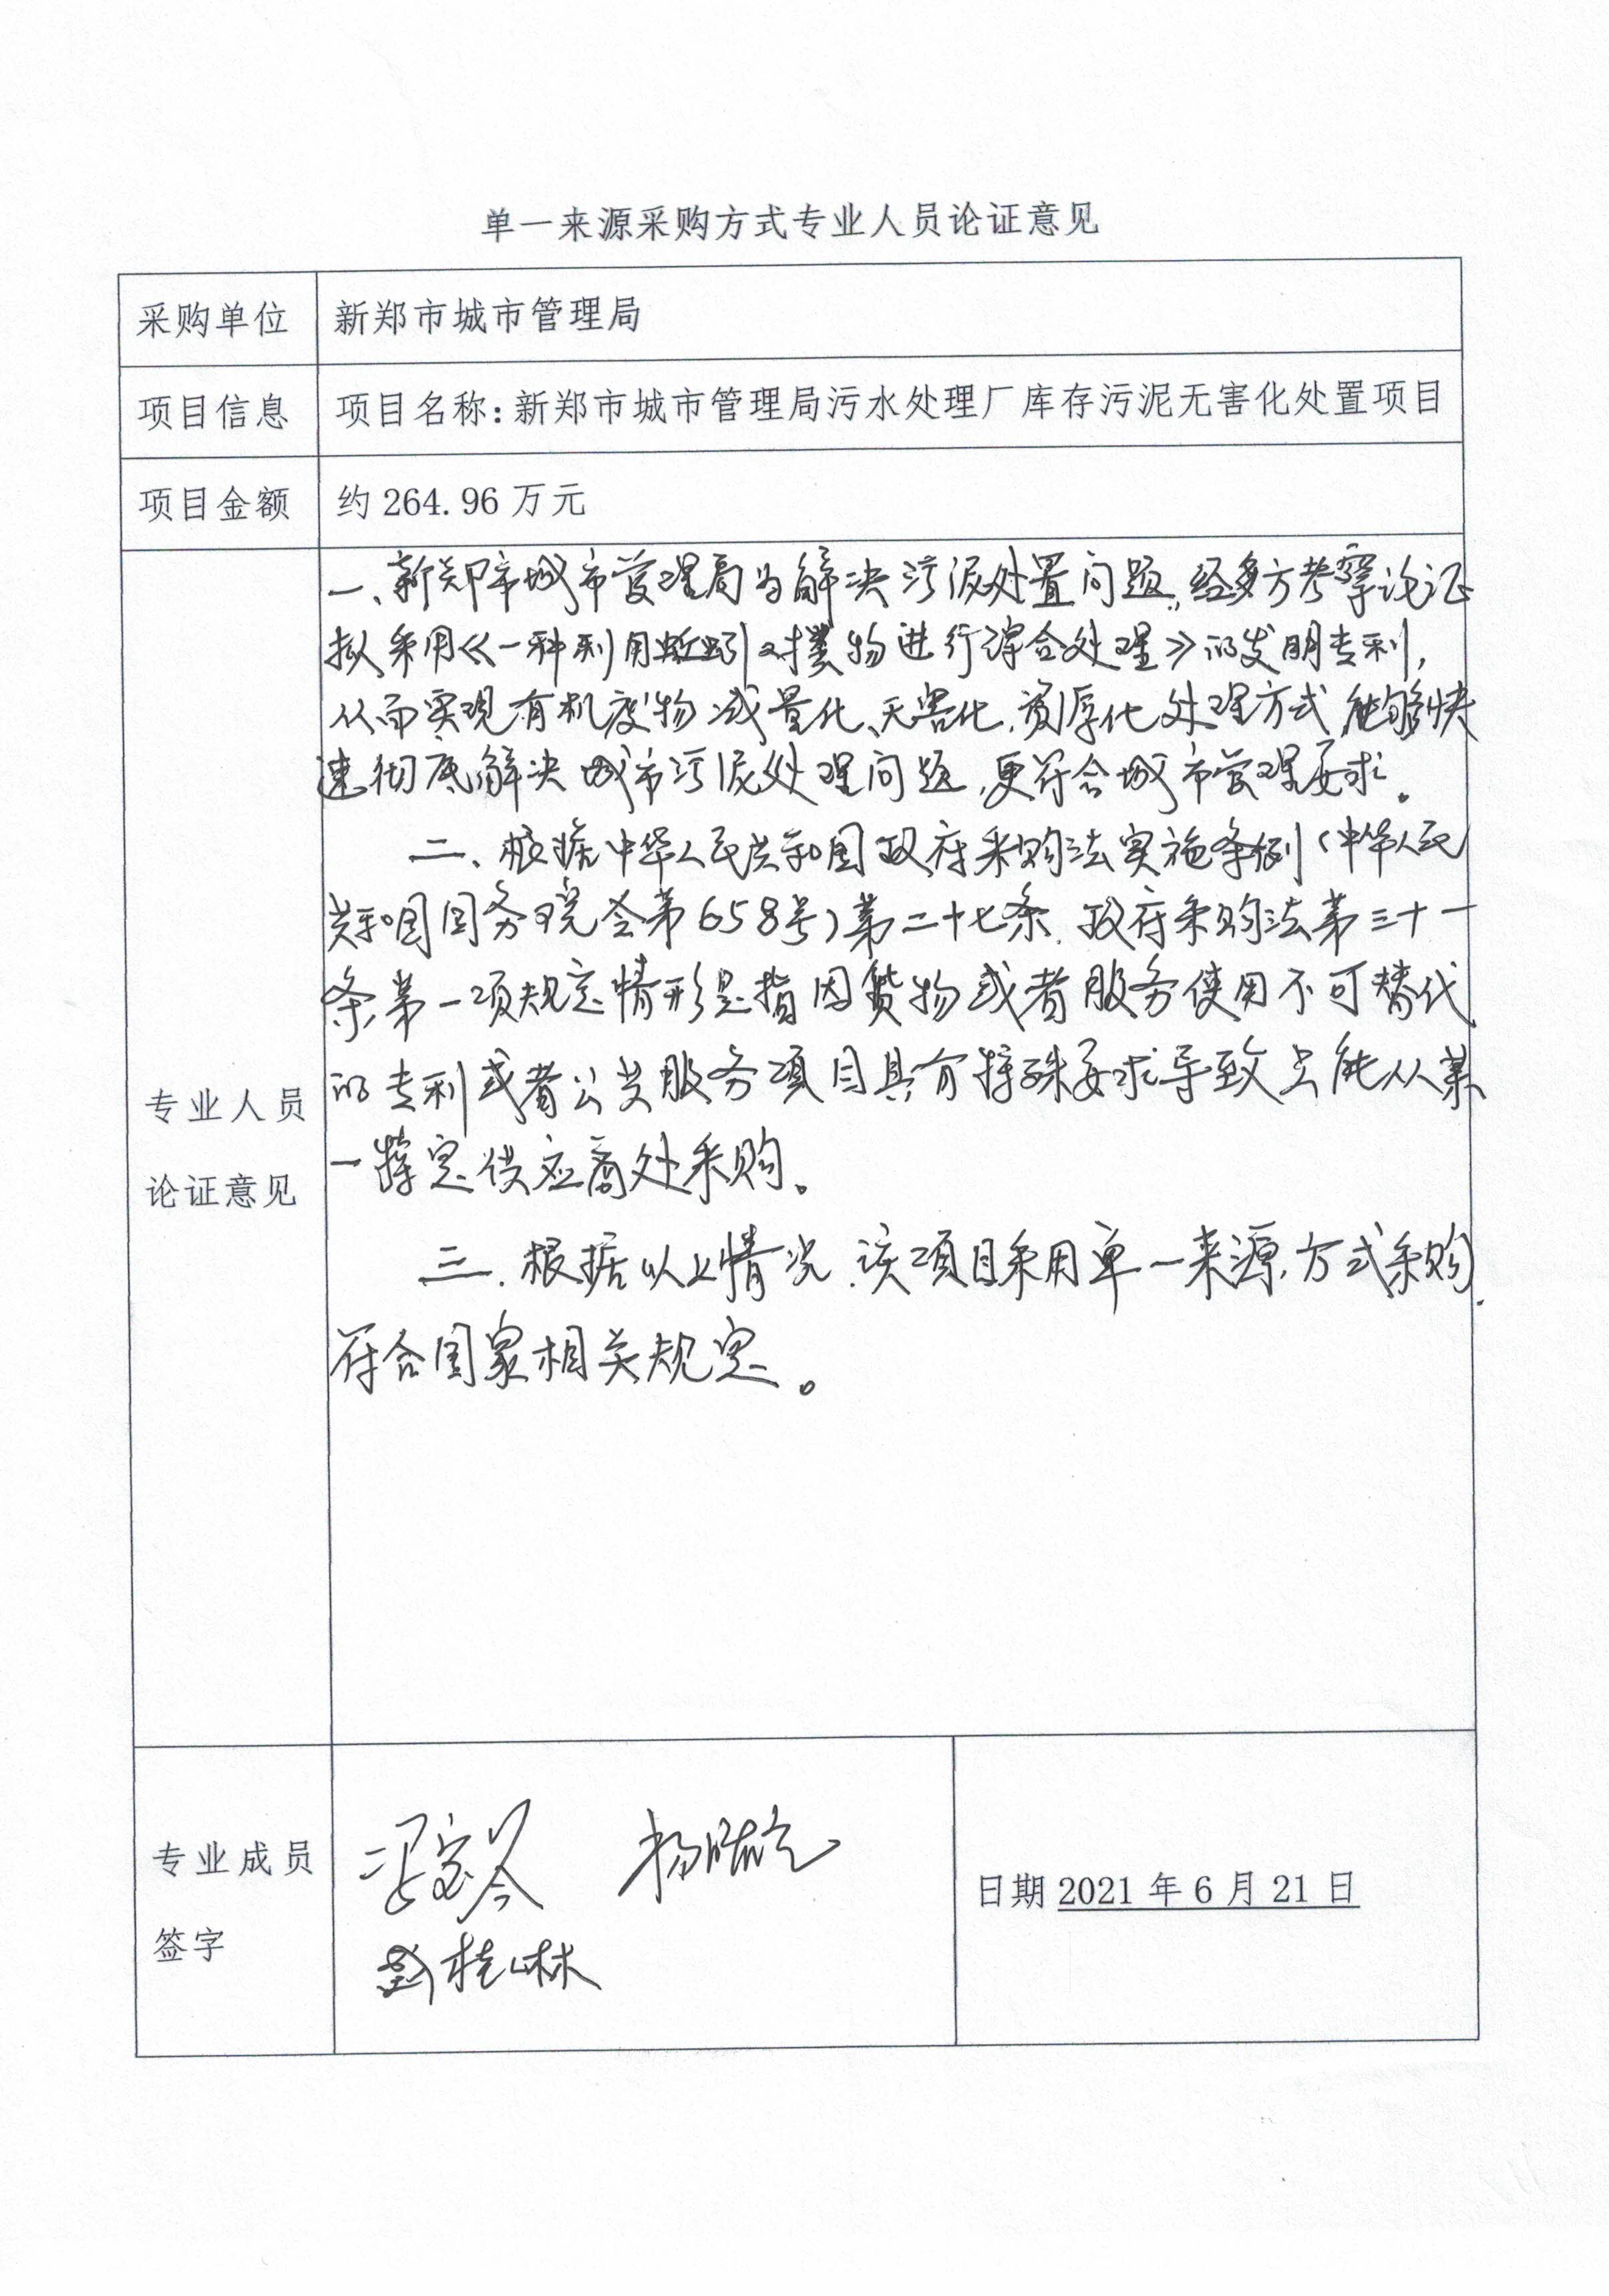 单一来源采购方式专业人员论证意见
采购单位 新郑市城市管理局
项目信息 项目名称：新郑市城市管理局污水处理厂库存污泥无害化处置项目
项目金额 约 264.96 万元
专业人员
论证意见
一、新郑市城市管理局为解决污泥处置问题，经多方考察论证
拟采用《一种利用蚯蚓对粪物进行综合处理》的发明专利，
从而实现有机废物减量化、无害化、资源化处理方式，能够快
速彻底解决城市污泥处理问题，更符合城市管理要求。
二、根据中华人民共和国政府采购法实施条例（中华人民
共和国国务院令第658号）第二十七条，政府采购法第三十一
条第一项规定情形是指因货物或者服务使用不可替代
的专利或者公共服务项目具有特殊要求导致只能从某
一特定供应商处采购。
三、根据以上情况，该项目采用单一来源方式采购，
符合国家相关规定。
专业成员
签字
桂林
日期 2021 年 6 月 21 日